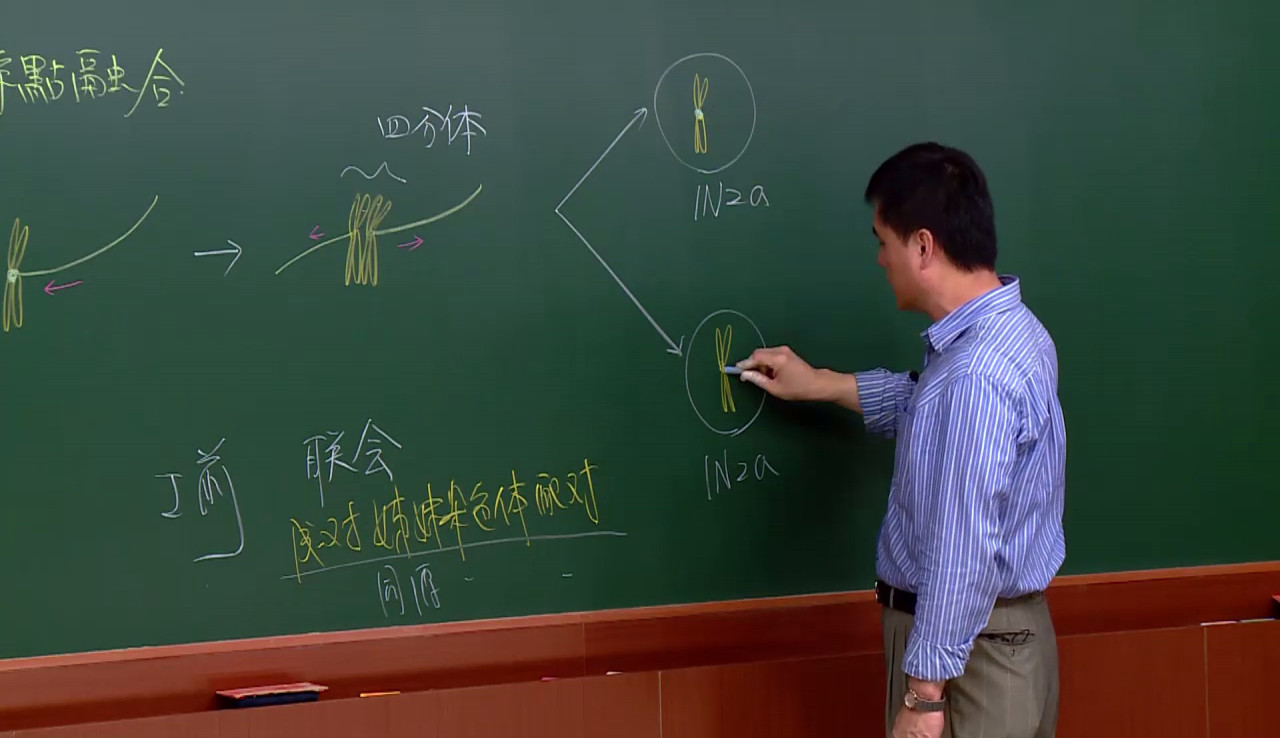 點融合
四分体
1N2a
1N2a
I前
联会
成对姊妹染色体配对
同源